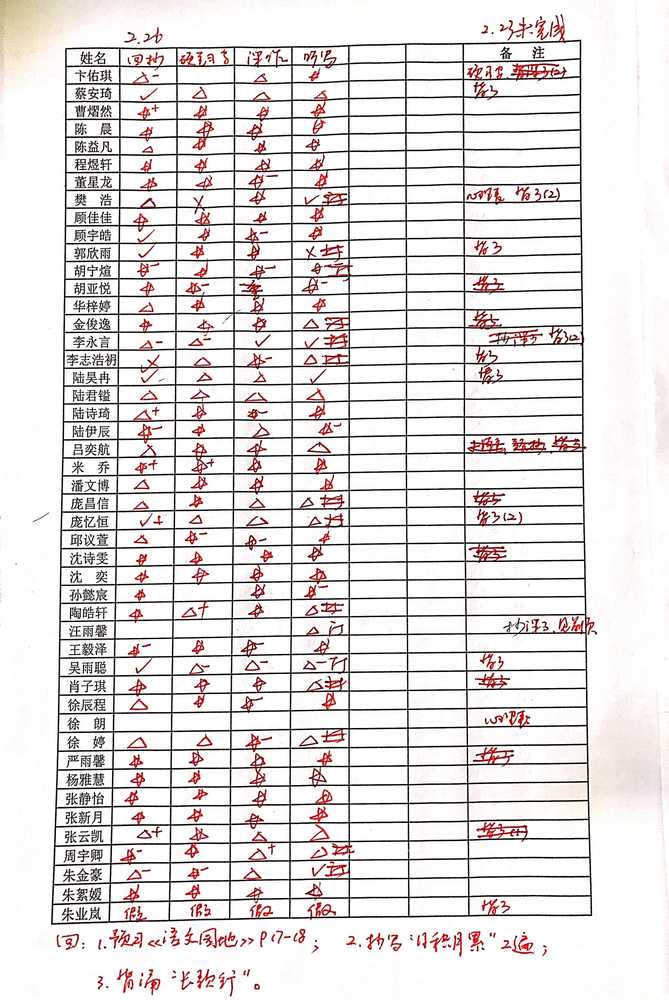 2.26 2.23未完成
姓名 回抄 预习书 课作 听写 备注
卞佑琪 △- △ ☆
蔡安琦 ✓ △ △ △ 背3
曹熠然 ☆+ ☆ ☆ ☆
陈晨 ☆ ☆ ☆ ☆
陈益凡 △ ☆ ☆ ☆
程煜轩 ☆ ☆ ☆ ☆
董星龙 ☆ ☆ ☆- ☆
樊浩 △ X ☆ ✓ 背3(2)
顾佳佳 ☆ ☆ ☆ ☆
顾宇皓 ✓ ☆ ☆- ☆
郭欣雨 ✓ ☆ ☆ X 背3
胡宁煊 ☆- ☆ ☆- ☆
胡亚悦 ☆ ☆- ☆-
华梓婷 △ ☆ ☆ ☆
金俊逸 ☆ ☆ ☆ △
李永言 △- △- ✓ ✓ 背3(2)
李志浩初 X △ ☆- △ 背3
陆昊冉 ✓ △ △ ✓ 背3
陆君镒 △ △ △ △
陆诗琦 △+ ☆ ☆- ☆
陆伊辰 ☆- ☆ △ ☆-
吕奕航 △ ☆ ☆ △
米乔 ☆+ ☆+ ☆ ☆
潘文博 △ ☆ △ ☆
庞昌信 △ ☆ △ △
庞忆恒 ✓+ △ △ △ 背3(2)
邱议萱 △ ☆- ☆- ☆
沈诗雯 ☆ ☆ ☆ ☆
沈奕 ☆ ☆ ☆ ☆
孙懿宸 ☆ ☆ ☆-
陶皓轩 ☆ △+ ☆ △
汪雨馨 △
王毅泽 ☆- ☆ ☆- ☆
吴雨聪 ✓ △- △- △- 背3
肖子琪 ☆ ☆ ☆ △
徐辰程 △ ☆ ☆- ☆
徐朗
徐婷 △ △ ☆- △
严雨馨 ☆ ☆ ☆ ☆
杨雅慧 ☆ ☆ ☆ ☆
张静怡 ☆ ☆ ☆ ☆
张新月 ☆ ☆ ☆ ☆
张云凯 △+ ☆ △ △
周宇卿 ☆- ☆ △+ △
朱金豪 △- ☆- △ ✓
朱絮媛 ☆ ☆ ☆ ☆
朱业岚 假 假 假 假 背3
回：1.预习《语文园地》P17-18； 2.抄写"日积月累"2遍；
3.背诵"长歌行"。